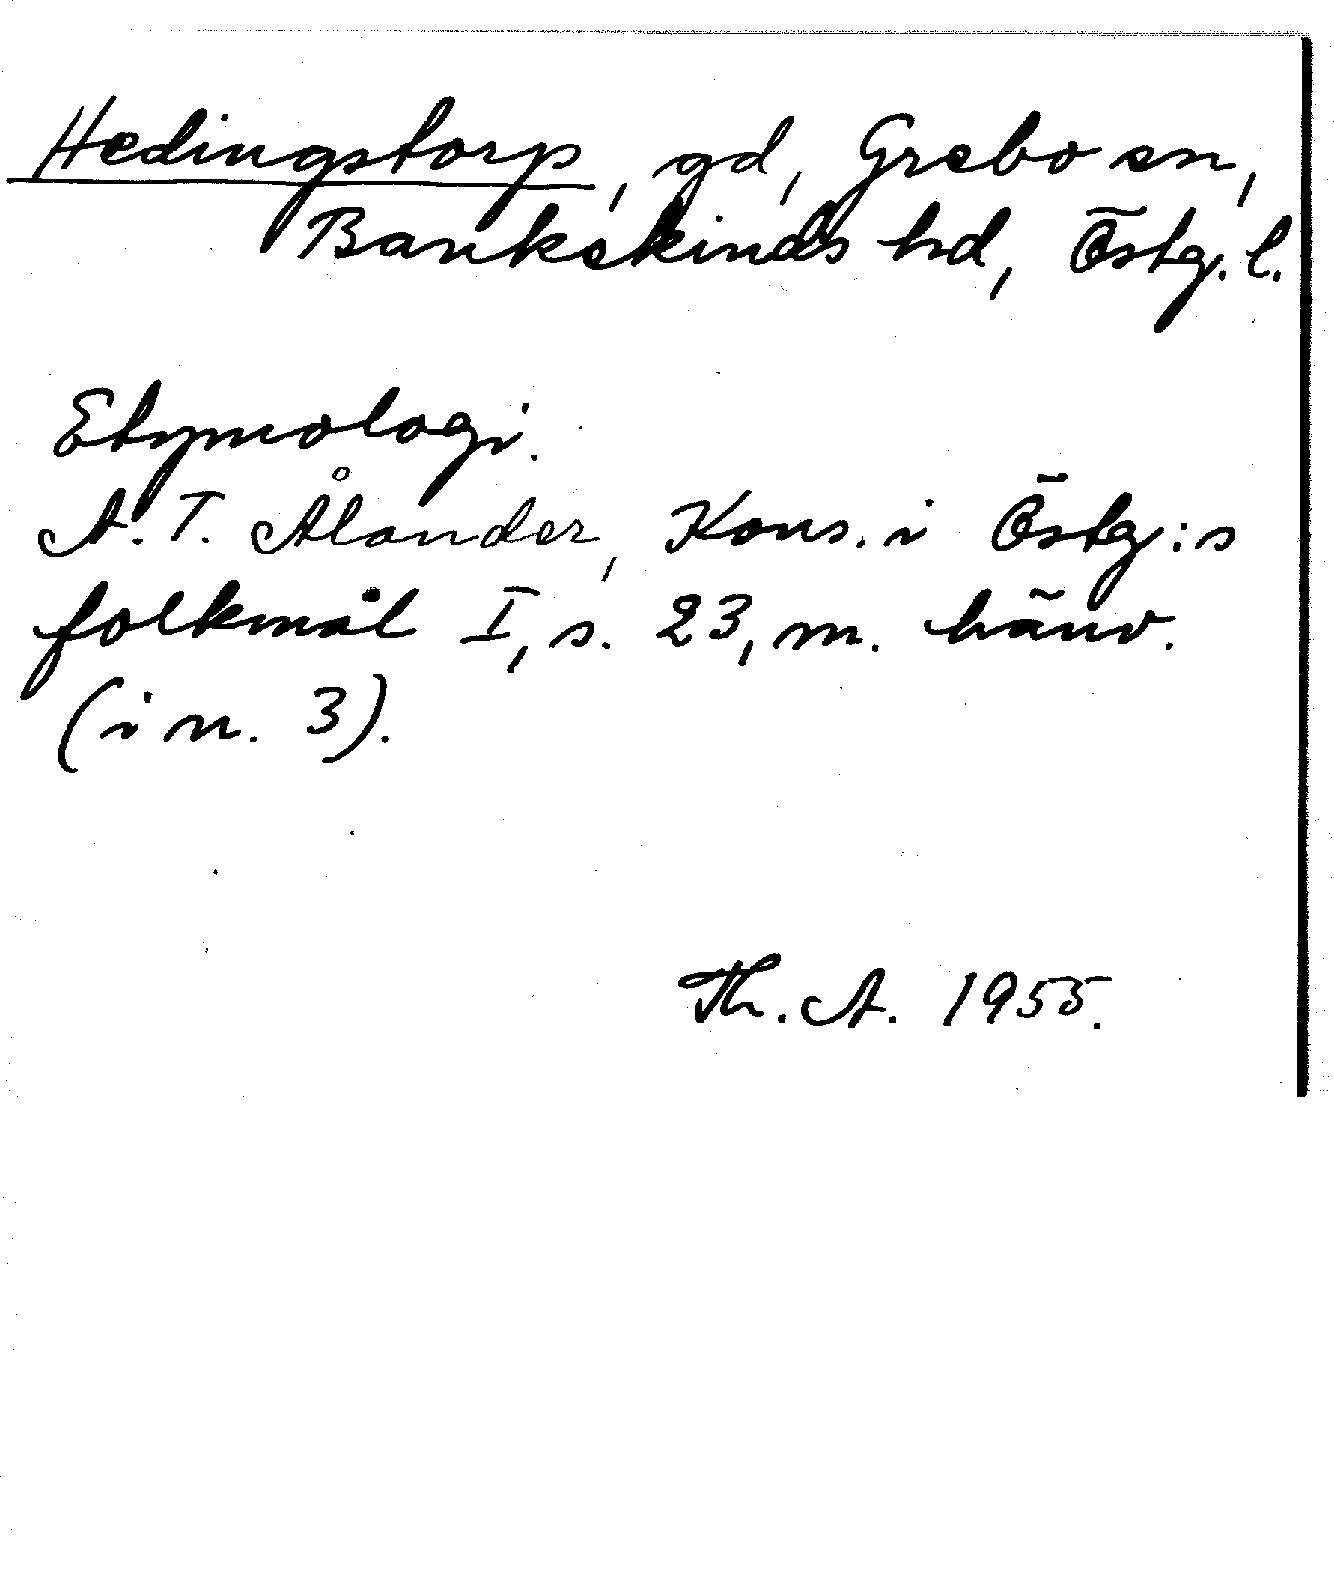 Hedingstorp, gd, Grebo sn,
Bankekinds hd, Östg. l.
Etymologi.
A. T. Ålander, Kons. i Östg:s
folkmål I, s. 23, m. hänv.
(i n. 3).
Th. A. 1955.